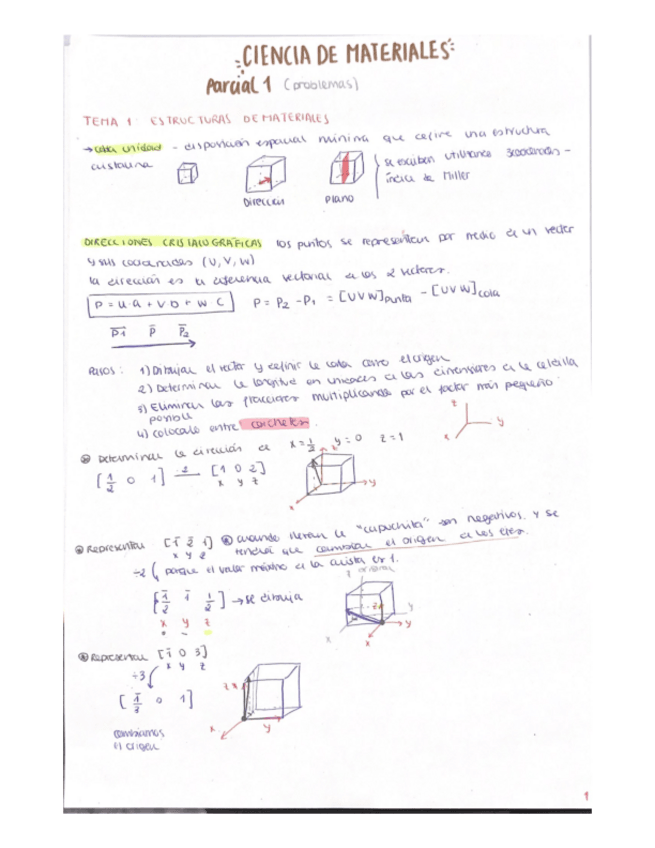 CIENCIA DE MATERIALES
Parcial 1 (problemas)
TEMA 1: ESTRUCTURAS DE MATERIALES
→ celda unidad - disposición espacial mínima que define una estructura
cristalina
Dirección
Plano
se escriben utilizando
índice de Miller
DIRECCIONES CRISTALOGRÁFICAS los puntos se representan por medio de un vector
y sus coordenadas (U, V, W)
la dirección es la diferencia vectorial de los 2 vectores.
P = U·a + V b + W c
P = P2 - P1 = [UVW]punta - [UVW]cola
P1 P P2
Pasos: 1) Dibujar el vector y definir la cola como el origen
2) Determinar la longitud en unidades de las dimensiones de la celdilla
3) Eliminar las fracciones multiplicando por el factor más pequeño
posible
4) colocarlo entre corchetes.
z
x y
Determinar la dirección de x = 1/2 y = 0 z = 1
[1/2 0 1] 2 [1 0 2]
x y z
z
y
x
Representar [1̄ 2̄ 1] cuando llevan la "capuchita" son negativos, y se
x y z tendrá que cambiar el origen de los ejes.
÷2 porque el valor máximo de la arista es 1.
[1̄/2 1̄ 1/2] → se dibuja
x y z
z
y
x
z
y
x
Representar [1̄ 0 3]
x y z
÷3
[1̄/3 0 1]
z
y
x
cambiamos
el origen
1